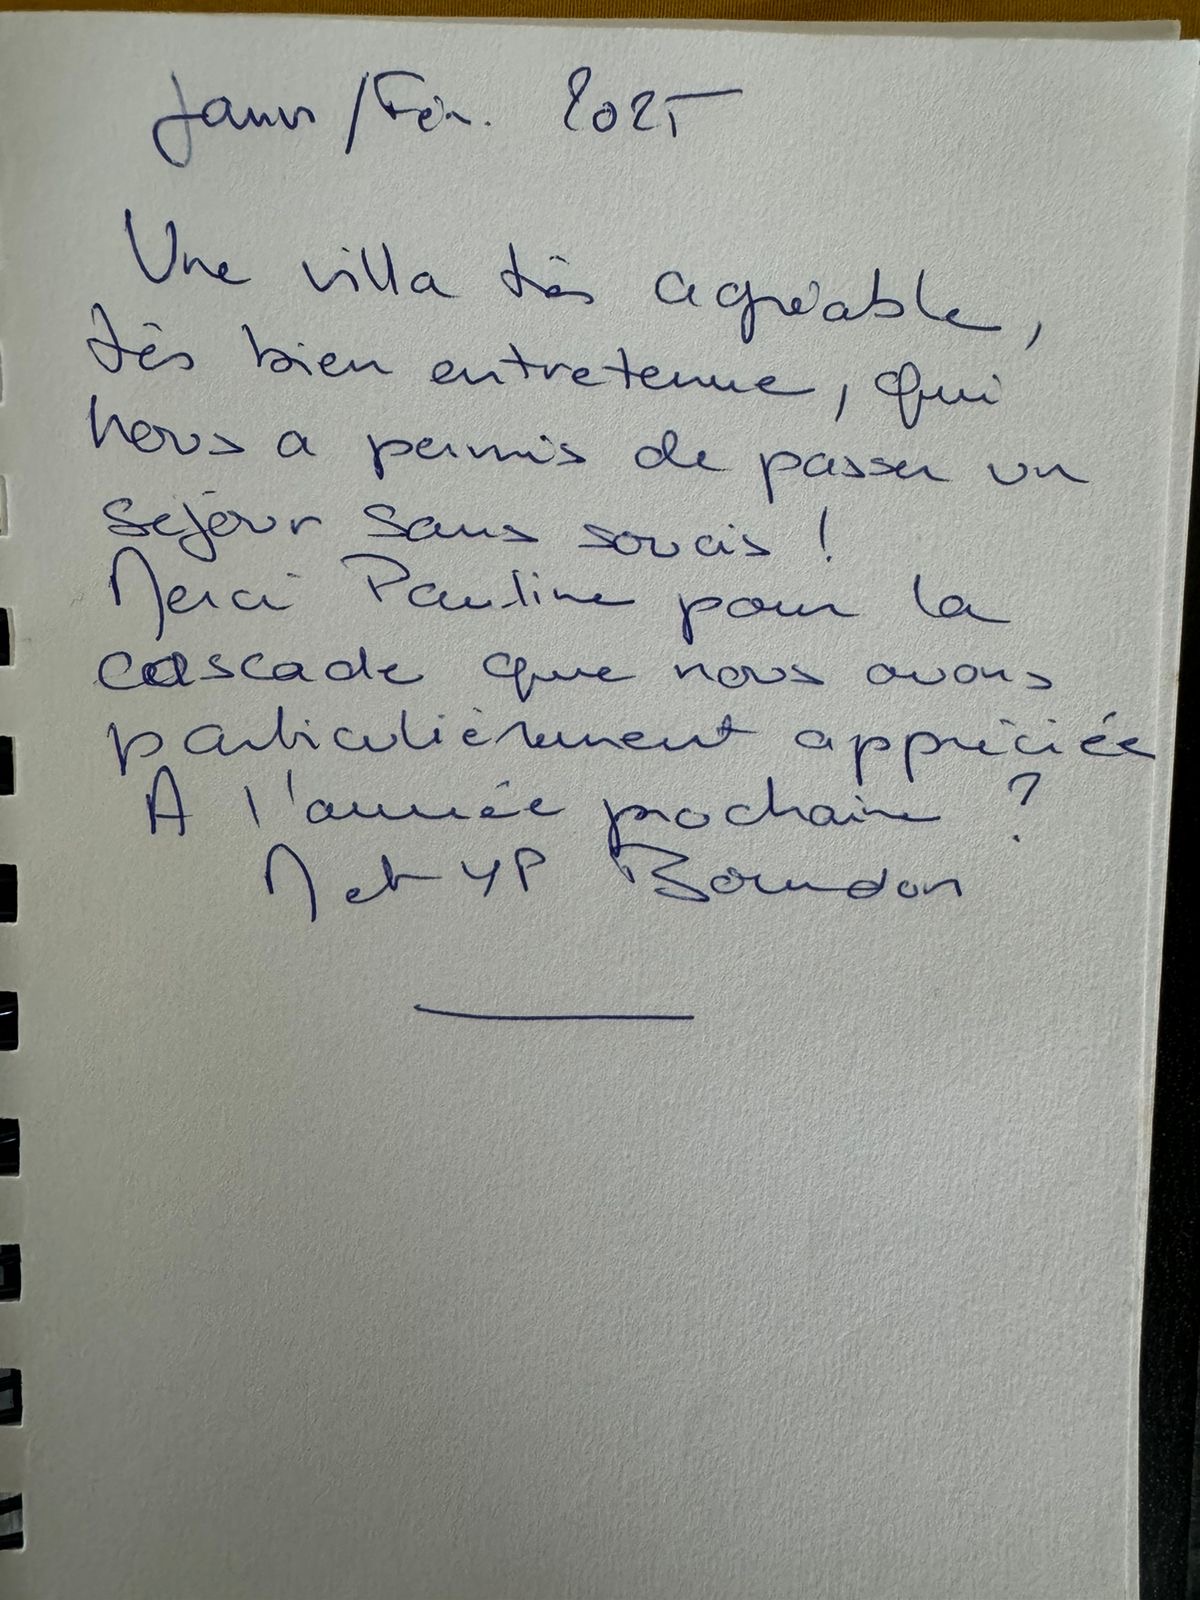 Janv /Fév. 2025
Une villa très agréable,
très bien entretenue, qui
nous a permis de passer un
séjour sans soucis !
Merci Pauline pour la
cascade que nous avons
particulièrement appréciée
A l'année prochaine ?
M et YP